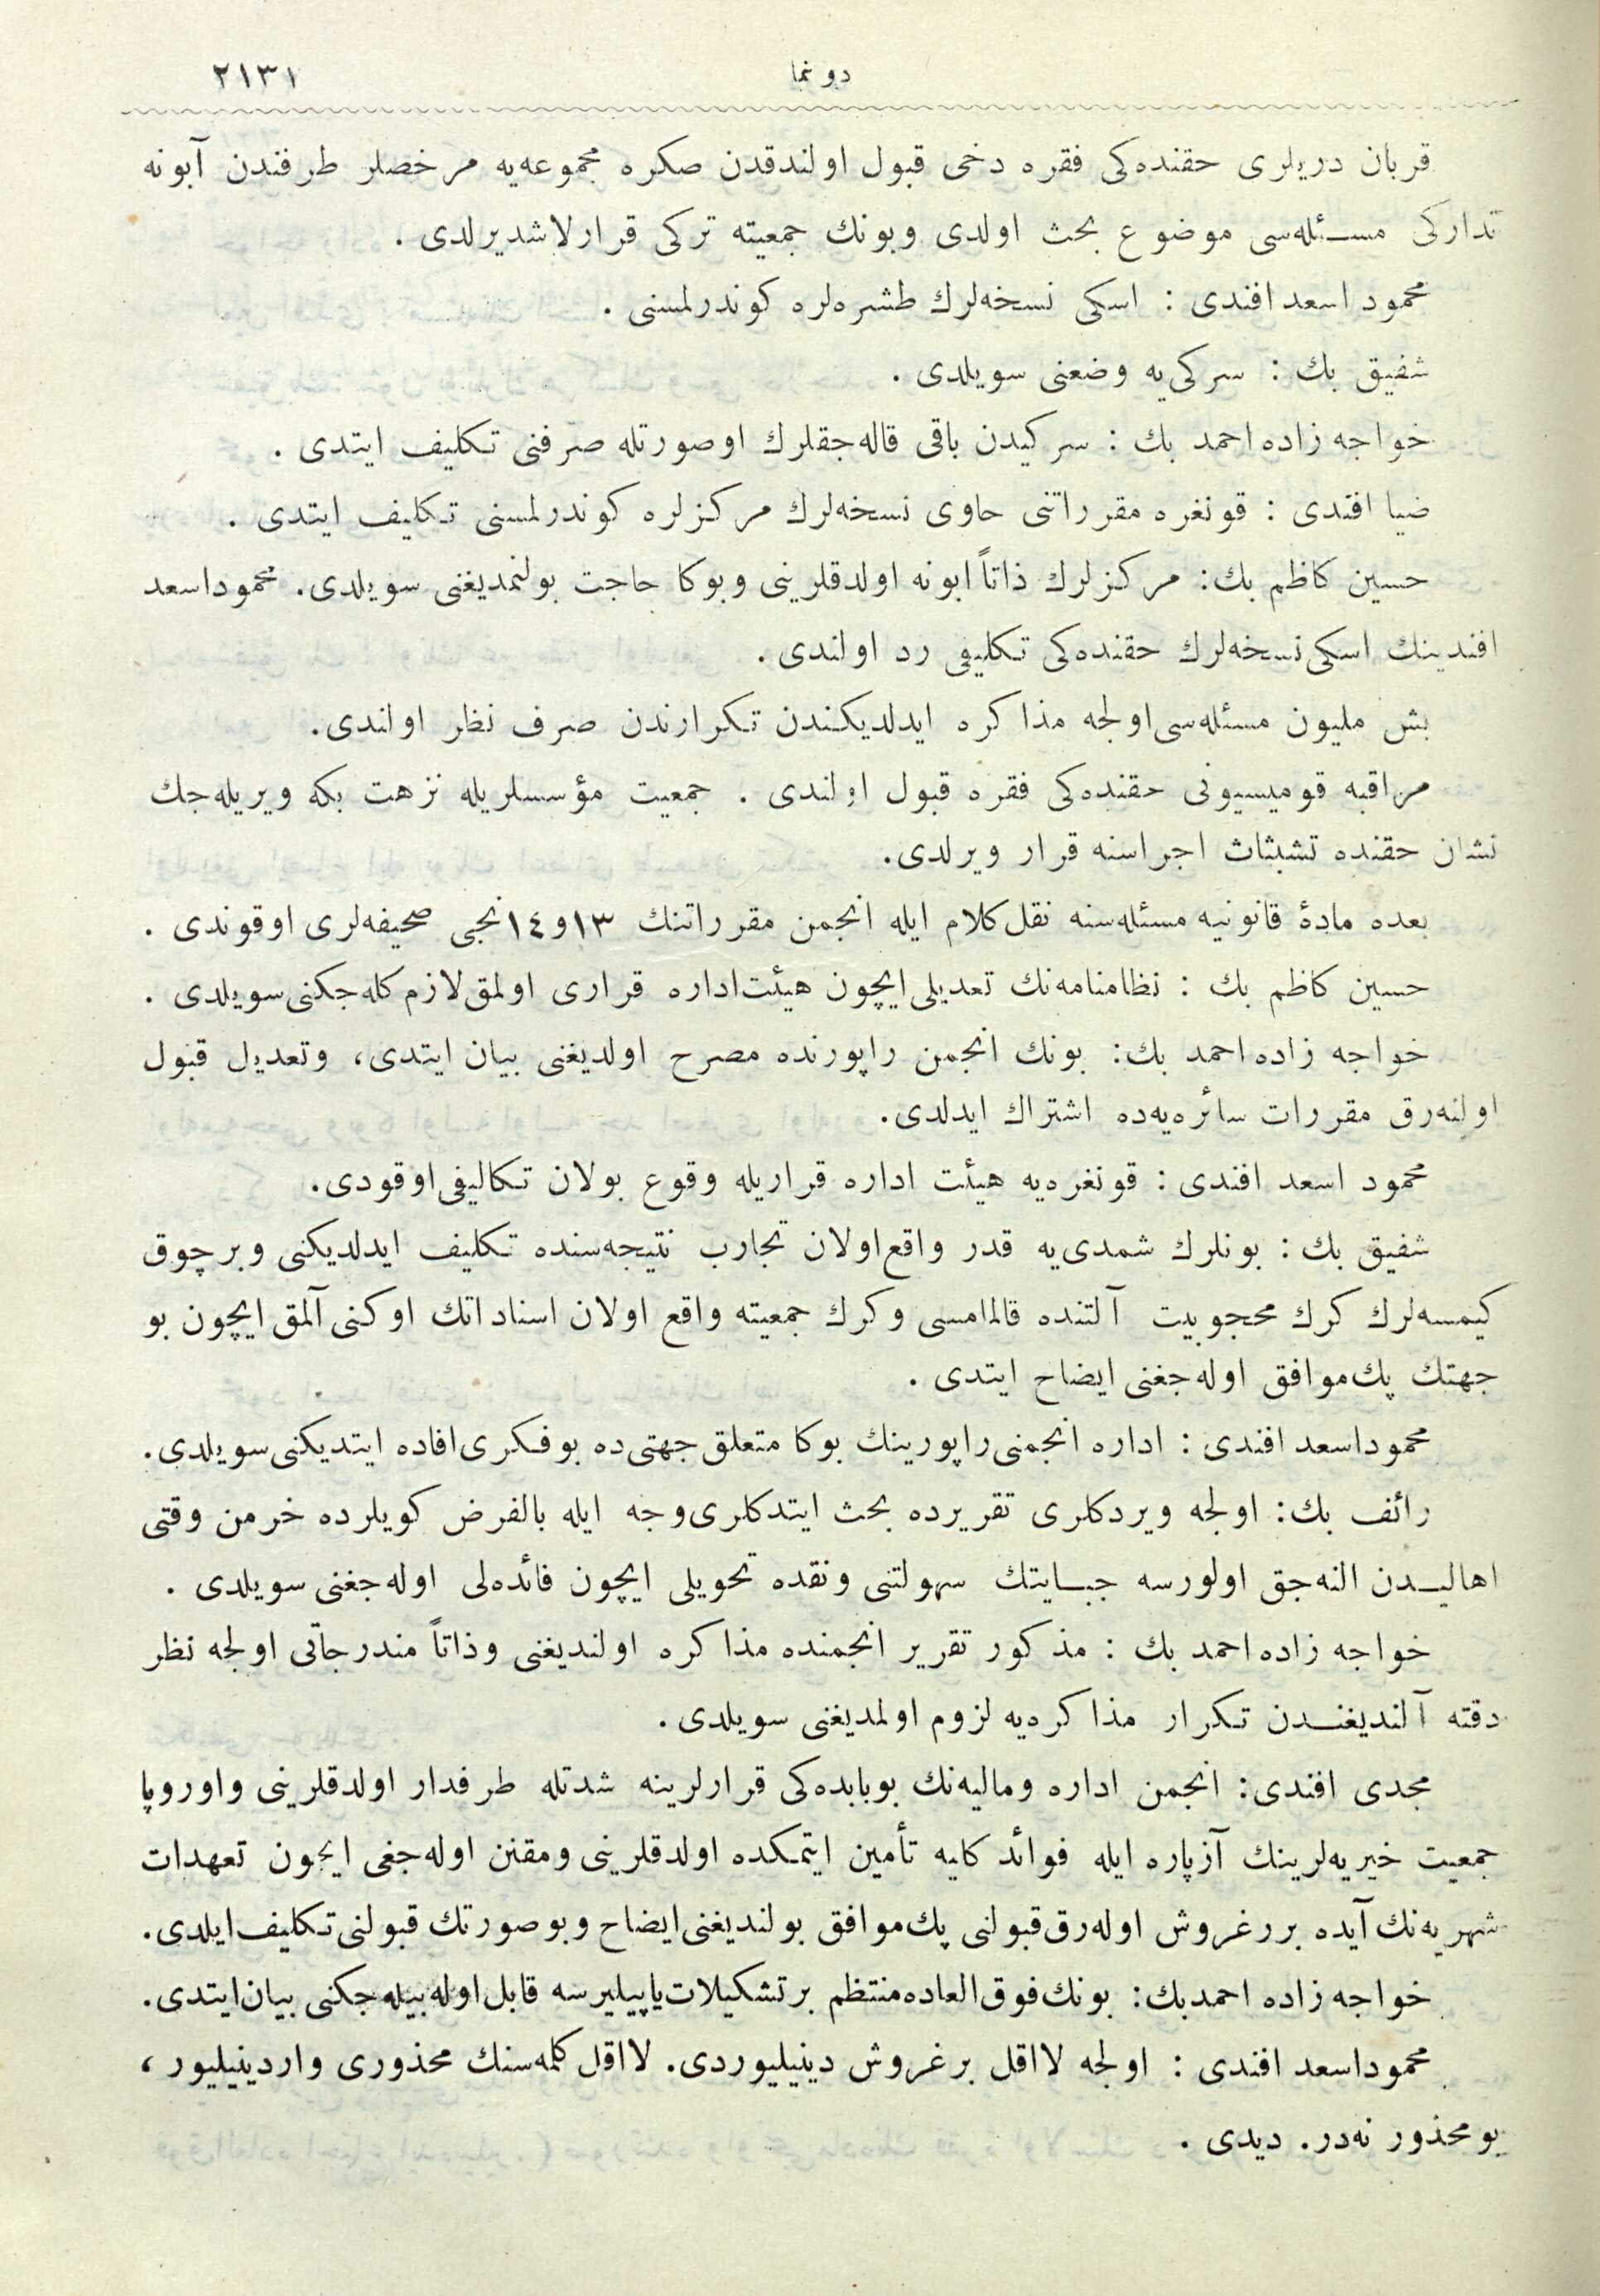 دونما ٢١٣١
قربان دریلری حقنده‌کی فقره دخی قبول اولندقدن صکره مجموعه‌یه مرخصلر طرفندن آبونه
تدارکی مسئله‌سی موضوع بحث اولدی وبونك جمعیته ترکی قرارلاشدیرلدی .
محمود اسعد افندی : اسکی نسخه‌لرك طشره‌لره کوندرلمسنی .
شفیق بك : سرکی‌یه وضعنی سویلدی .
خواجه زاده احمد بك : سرکیدن باقی قاله‌جقلرك اوصورتله صرفنی تکلیف ایتدی .
ضیا افندی : قونغره مقرراتنی حاوی نسخه‌لرك مرکزلره کوندرلمسنی تکلیف ایتدی .
حسین کاظم بك: مرکزلرك ذاتاً ابونه اولدقلرینی وبوکا حاجت بولنمدیغنی سویلدی. محموداسعد
افندینك اسکی نسخه‌لرك حقنده‌کی تکلیفی رد اولندی .
بش ملیون مسئله‌سی اولجه مذاکره ایدلدیکندن تکرارندن صرف نظر اولندی.
مراقبه قومیسیونی حقنده‌کی فقره قبول اولندی . جمعیت مؤسسلریله نزهت بکه ویریله‌جك
نشان حقنده تشبثات اجراسنه قرار ویرلدی.
بعده مادهٔ قانونیه مسئله‌سنه نقل کلام ایله انجمن مقرراتنك ١٣و١٤نجی صحیفه‌لری اوقوندی .
حسین کاظم بك : نظامنامه‌نك تعدیلی ایچون هیئت اداره قراری اولمق لازم کله‌جکنی سویلدی .
خواجه زاده احمد بك: بونك انجمن راپورنده مصرح اولدیغنی بیان ایتدی، وتعدیل قبول
اولنه‌رق مقررات سائره‌یه‌ده اشتراك ایدلدی.
محمود اسعد افندی : قونغره‌یه هیئت اداره قراریله وقوع بولان تکالیفی اوقودی.
شفیق بك : بونلرك شمدی‌یه قدر واقع اولان تجارب نتیجه‌سنده تکلیف ایدلدیکنی وبرچوق
کیمسه‌لرك کرك محجوبیت آلتنده قالمامسی وکرك جمعیته واقع اولان اسناداتك اوکنی آلمق ایچون بو
جهتك پك موافق اوله‌جغنی ایضاح ایتدی .
محموداسعد افندی : اداره انجمنی راپورینك بوکا متعلق جهتی‌ده بوفکری افاده ایتدیکنی سویلدی.
رائف بك: اولجه ویردکلری تقریرده بحث ایتدکلری وجه ایله بالفرض کویلرده خرمن وقتی
اهالیدن النه‌جق اولورسه جبایتك سهولتنی ونقده تحویلی ایچون فائده‌لی اوله‌جغنی سویلدی .
خواجه زاده احمد بك : مذکور تقریر انجمنده مذاکره اولندیغنی وذاتاً مندرجاتی اولجه نظر
دقته آلندیغندن تکرار مذاکره‌یه لزوم اولمدیغنی سویلدی.
مجدی افندی: انجمن اداره ومالیه‌نك بوبابده‌کی قرارلرینه شدتله طرفدار اولدقلرینی واوروپا
جمعیت خیریه‌لرینك آزپاره ایله فوائد کلیه تأمین ایتمکده اولدقلرینی ومقنن اوله‌جغی ایچون تعهدات
شهریه‌نك آیده بررغروش اوله‌رق قبولنی پك موافق بولندیغنی ایضاح وبوصورتك قبولنی تکلیف ایلدی.
خواجه زاده احمدبك: بونك فوق العاده منتظم برتشکیلات یاپیلیرسه قابل اوله‌بیله‌جکنی بیان ایتدی.
محموداسعد افندی : اولجه لااقل برغروش دینیلیوردی. لااقل کلمه‌سنك محذوری واردینیلیور ،
بو محذور نه‌در. دیدی .